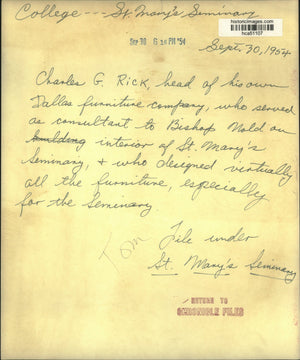 College --- St. Mary's Seminary
historicimages.com
hca51107
SEP 30 6 16 PM '54
Sept. 30, 1954
Charles G. Rick, head of his own
Dallas furniture company, who served
as consultant to Bishop Nold on
building interior of St. Mary's
Seminary, & who designed virtually
all the furniture, especially
for the Seminary
Tom
File under
St. Mary's Seminary
RETURN TO
CHRONICLE FILES